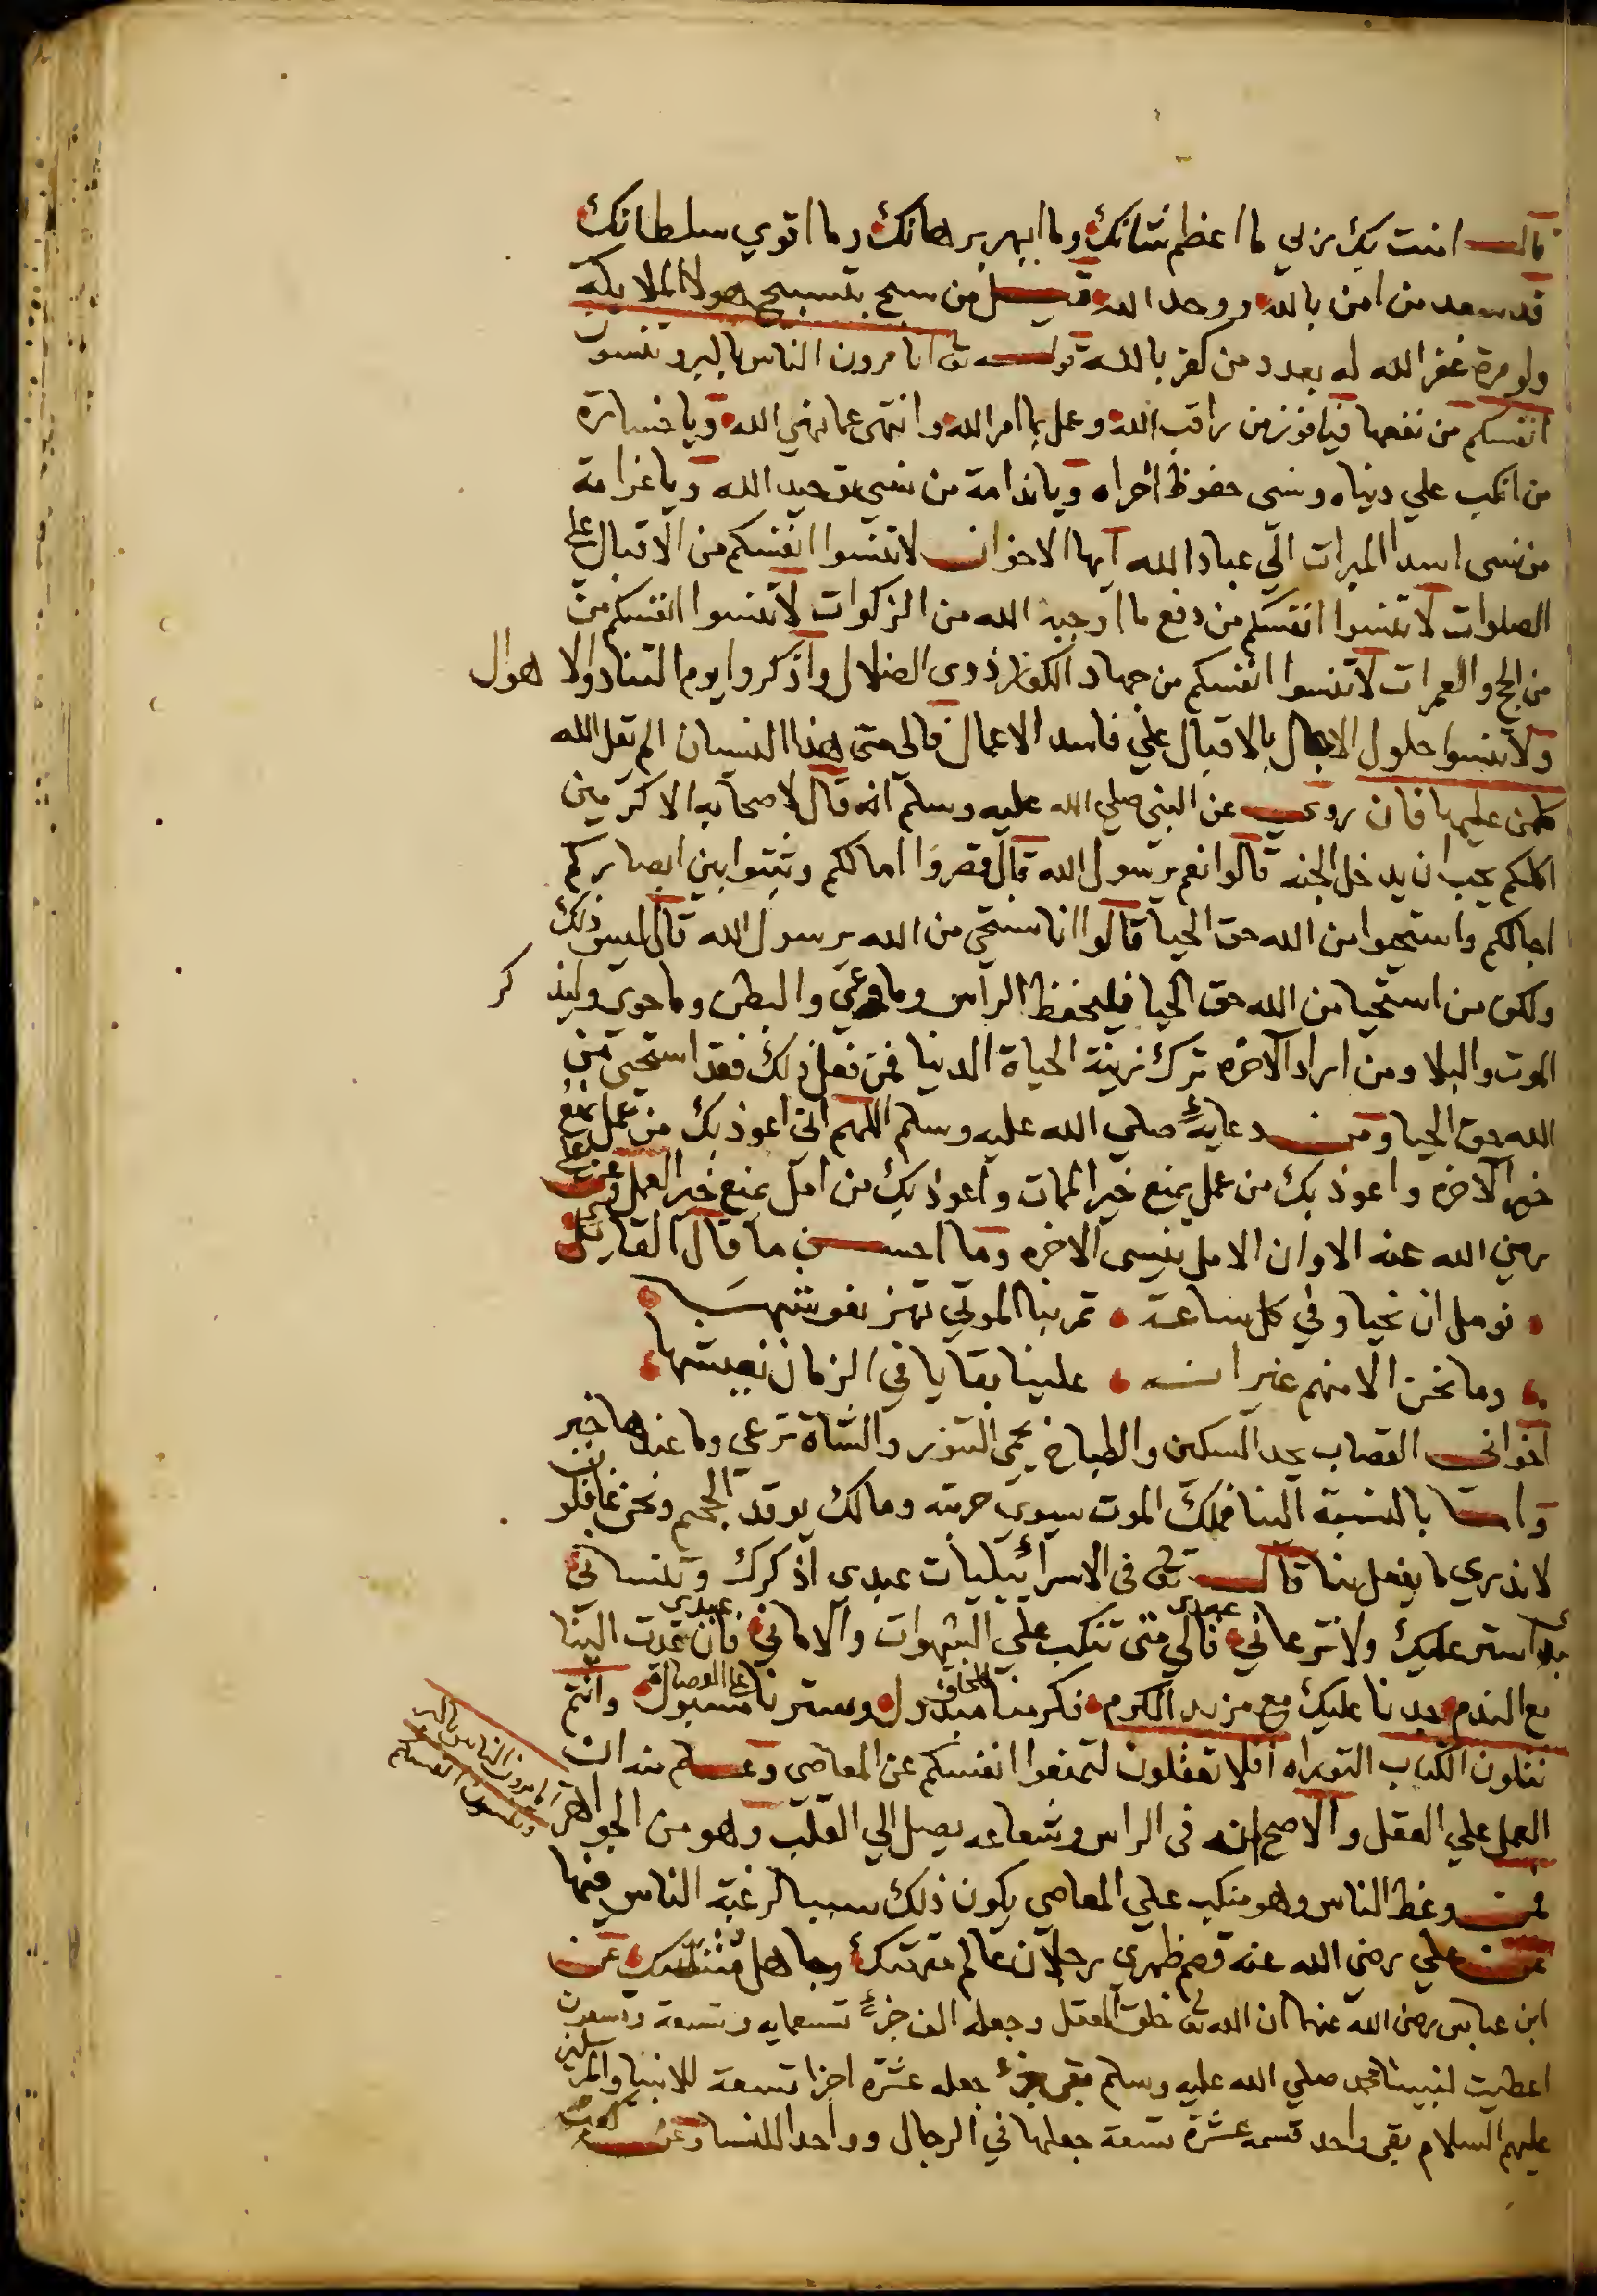 قالت امنت بك يا ربي ما اعظم شانك وما ابهر برهانك وما اقوي سلطانك
قد سعد من امن بالله ووحد الله قيل من سبح بتسبيح هولا الملايكة
ولو مرة غفر الله له بعدد من كفر بالله قوله تع اتامرون الناس بالبر وتنسون
انفسكم من نفعها فيا فوز من راقب الله وعمل بما امر الله وانتهى عما نهي الله ويا خسارة
من انكب علي دنياه ونسى حفوظ اخراه ويا ندامة من نسي توحيد الله ويا غرامة
من نسى اسدا المبرات الي عباد الله ايها الاخوان لا تنسوا انفسكم من الاقبال علي
الصلوات لا تنسوا انفسكم من دفع ما اوجبه الله من الزكوات لا تنسوا انفسكم من
من الحج والعمرات لا تنسوا انفسكم من جهاد الكفار ذوى الضلال واذكروا يوم التناد والاهوال
ولا تنسوا حلول الاجال بالاقبال علي فاسد الاعمال فالى متى هذا النسيان الم يقل الله
كلمن عليها فان روي عن النبي صلي الله عليه وسلم انه قال لاصحابه الاكرمين
اكلكم يحب ان يدخل الجنه قالوا نعم يرسول الله قال قصروا امالكم وثبتوا بين ابصاركم
اجالكم واستحيوا من الله حق الحيا قالوا انا نستحي من الله يرسول الله قال ليس ذلك
ولكن من استحيا من الله حق الحيا فليحفظ الراس وما وعي والبطن وما حوى وليذكر
الموت والبلا ومن اراد الاخره ترك زينة الحياة الدنيا فمن فعل ذلك فقد استحيى من
الله حق الحيا ومن دعايه صلي الله عليه وسلم اللهم اني اعوذ بك من عمل يمنع
خير الاخره واعوذ بك من عمل يمنع خير الممات واعوذ بك من امل يمنع خير العمل وعن علي
رضي الله عنه الا وان الامل ينسى الاخره وما احسن ما قال القايل
نومل ان نحيا وفي كل ساعة تمر بنا الموتي تهز نعوشها
وما نحن الا منهم غير انه علينا بقايا في الزمان نعيشها
اخواني القصاب يحد السكين والطباخ يحمي التنور والشاة ترعي وما عندها خبر
واما بالنسبة الينا فملك الموت يسوي حربته ومالك يوقد الجحيم ونحن غافلون
لا ندري ما يفعل بنا قال تع فى الاسرائيليات عبدى اذكرك وتنساني
استر عليك ولا ترعاني عبدى فالي متى تنكب علي الشهوات والاماني عبدى فان عدت الينا
مع الندم جدنا عليك مع مزيد الكرم فكرمنا للخلق مبذول وسترنا علي العصاة مسبول وانتم
تتلون الكتاب التوراه افلا تعقلون لتمنعوا انفسكم عن المعاصى وعلم منه ان
العمل علي العقل والاصح انه فى الراس وشعاعه يصل الي القلب وهو من الجواهر
اتامرون الناس بالبر
وتنسون انفسكم
فمن وعظ الناس وهو منكب علي المعاصي يكون ذلك سببا لرغبة الناس فيها
عن علي رضي الله عنه قصم ظهري رجلان عالم متهتك وجاهل متنسك عن
ابن عباس رضى الله عنهما ان الله تع خلق العقل وجعله الف جزء تسعمايه وتسعة وتسعون
اعطيت لنبينا محمد صلي الله عليه وسلم بقي جزء جعله عشره اجزا تسعة للانبيا والمرسلين
عليهم السلام بقى واحد قسمه عشرة تسعة جعلها في الرجال وواحدا للنسا وعن